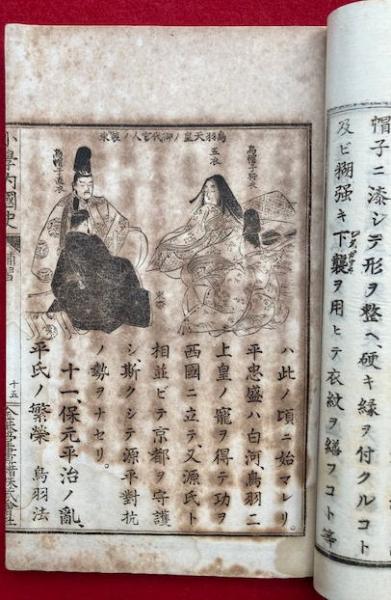 帽子ニ漆シテ形ヲ整ヘ、硬キ縁ヲ付クルコト
及ビ糊强キ下襲ヲ用ヒテ衣紋ヲ繕フコト等
鳥羽天皇ノ御代官人ノ裝束
五衣
烏帽子直衣
ハ此ノ頃ニ始マレリ。
平忠盛ハ白河、鳥羽二
上皇ノ寵ヲ得テ功ヲ
西國ニ立テ、又源氏ト
相並ビテ京都ヲ守護
シ、斯クシテ源平對抗
ノ勢ヲナセリ。
十一、保元平治ノ亂、
平氏ノ繁榮 鳥羽法
小學內國史 補習 十五